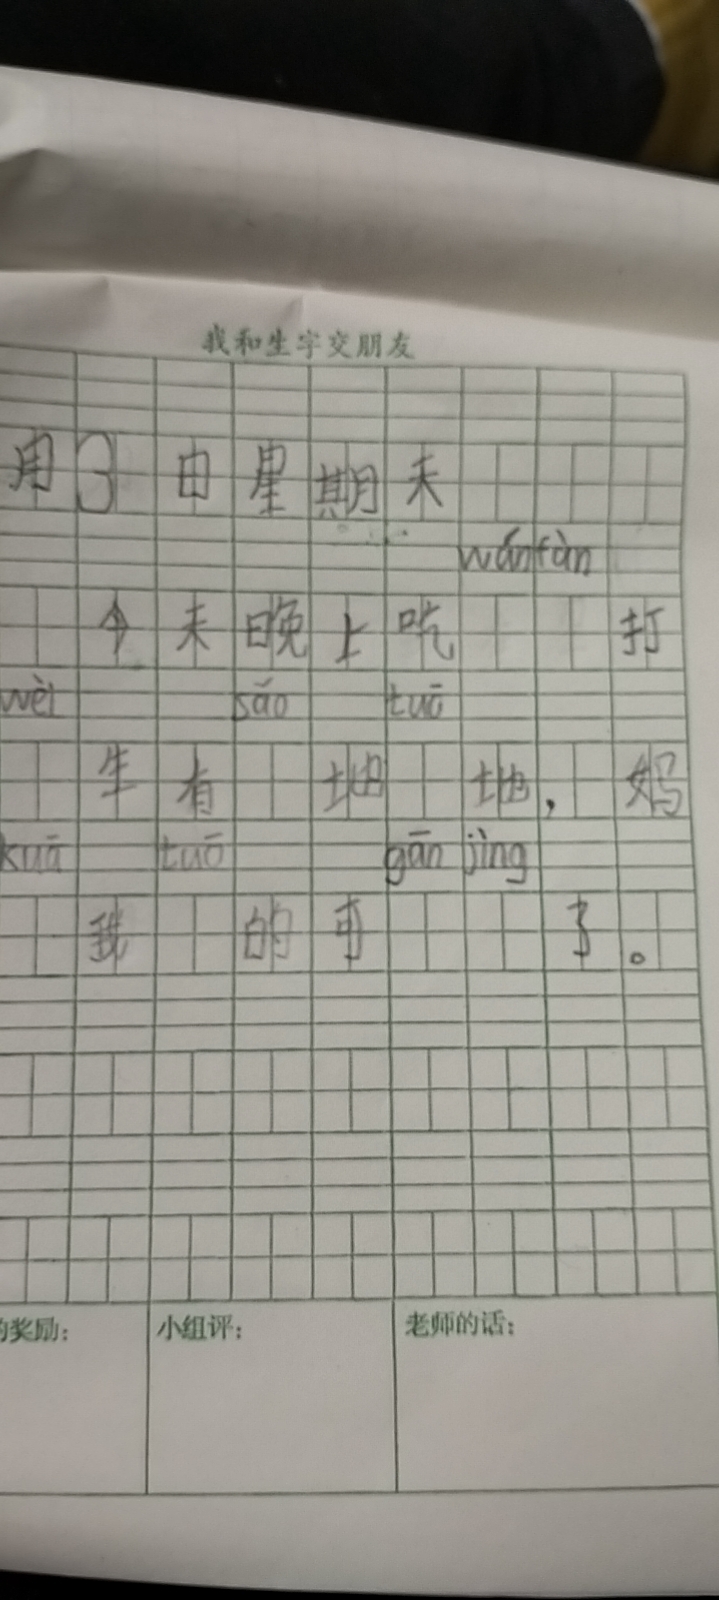 我和生字交朋友
月3日星期天
wǎnfàn
今天晚上吃 打
wèi sǎo tuō
生有 地 地，妈
kuā tuō gān jìng
我 的可 了。
的奖励： 小组评： 老师的话：